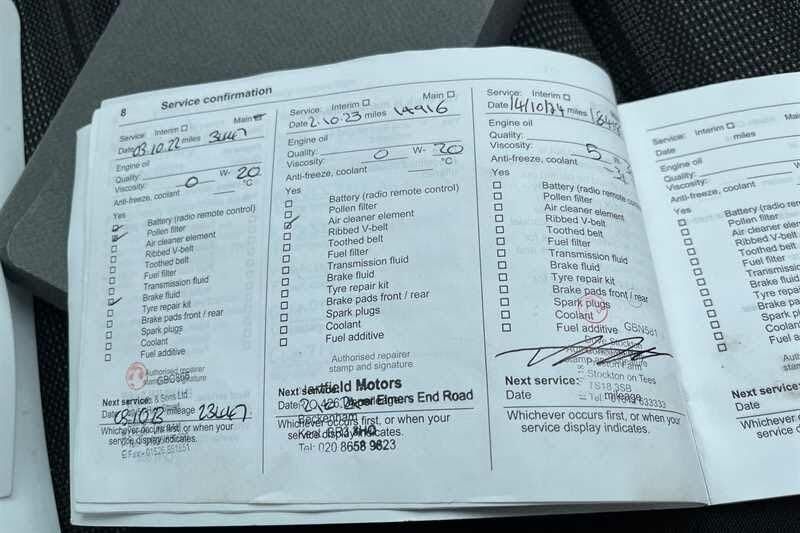 8 Service confirmation
Service: Interim Main
Date 03.10.22 miles 3447
Engine oil
Quality:
Viscosity: 0 W- 20
Anti-freeze, coolant °C
Yes
Battery (radio remote control)
Pollen filter
Air cleaner element
Ribbed V-belt
Toothed belt
Fuel filter
Transmission fluid
Brake fluid
Tyre repair kit
Brake pads front / rear
Spark plugs
Coolant
Fuel additive
Authorised repairer
stamp and signature
Next service:
Date mileage 23447
Whichever occurs first, or when your
service display indicates.
Service: Interim Main
Date 2.10.23 miles 14916
Engine oil
Quality:
Viscosity: 0 W- 20
Anti-freeze, coolant °C
Yes
Battery (radio remote control)
Pollen filter
Air cleaner element
Ribbed V-belt
Toothed belt
Fuel filter
Transmission fluid
Brake fluid
Tyre repair kit
Brake pads front / rear
Spark plugs
Coolant
Fuel additive
Authorised repairer
stamp and signature
Next service:
Motors
Date: Elmers End Road
Beckenham
Whichever occurs first, or when your
service display indicates.
Tel: 020 8658 9623
Service: Interim Main
Date 14/10/24 miles
Engine oil
Quality:
Viscosity: 5 W-
Anti-freeze, coolant
Yes
Battery (radio remote control)
Pollen filter
Air cleaner element
Ribbed V-belt
Toothed belt
Fuel filter
Transmission fluid
Brake fluid
Tyre repair kit
Brake pads front / rear
Spark plugs
Coolant
Fuel additive GBN5d1
Stockton on Tees
Next service: TS18 3SB
Date mileage
Whichever occurs first, or when your
service display indicates.
Service: Interim
Date miles
Engine oil
Quality:
Viscosity:
Anti-freeze, coolant
Yes
Battery (radio remote
Pollen filter
Air cleaner element
Ribbed V-belt
Toothed belt
Fuel filter
Transmission fluid
Brake fluid
Tyre repair kit
Brake pads front
Spark plugs
Coolant
Fuel additive
Next service:
Date
Whichever occurs
service